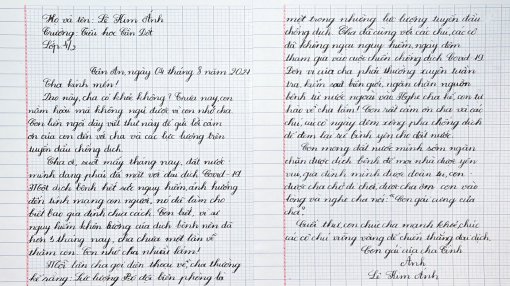 Họ và tên: Lê Kim Ánh
Trường: Tiểu học Cần
Lớp: 4/3
Cần An, ngày 04 tháng 3 năm 2021
Cha kính mến!
Dạo này, cha có khỏe không? Trưa nay, con
nằm hoài mà không ngủ được vì con nhớ cha.
Con liền ngồi dậy viết thư này để gửi lời cảm
ơn của con đến với cha và các lực lượng trên
tuyến đầu chống dịch.
Cha ơi, suốt mấy tháng nay, đất nước
mình đang phải đối mặt với đại dịch Covid-19.
Một dịch bệnh hết sức nguy hiểm, ảnh hưởng
đến tính mạng con người, nó đã làm cho
biết bao gia đình chia cách. Con biết, vì sự
nguy hiểm khôn lường của dịch bệnh nên đã
hơn 3 tháng nay, cha chưa một lần về
thăm con. Con nhớ cha nhiều lắm!
Mỗi lần cha gọi điện thoại về, cha thường
kể rằng: Lực lượng Bộ đội biên phòng là
một trong những lực lượng tuyến đầu
chống dịch. Cha đã cùng với các chú, các cô
đã không ngại nguy hiểm, ngày đêm
tham gia vào cuộc chiến chống dịch Covid-19.
Đơn vị của cha phải thường xuyên tuần
tra, kiểm soát biên giới, ngăn chặn nguồn
bệnh từ nước ngoài vào. Nghe cha kể, con tự
hào về cha lắm! Con rất cảm ơn cha và các
chú, các cô ngày đêm xông pha chống dịch
để đem lại sự bình yên cho đất nước.
Con mong đất nước mình sớm ngăn
chặn được dịch bệnh để mọi nhà được yên
vui, gia đình mình được đoàn tụ, con
được cha chở đi chơi, được cha ôm con vào
lòng và nghe cha nói: "Con gái cưng của
cha".
Cuối thư, con chúc cha mạnh khỏe, chúc
các cô chú vững vàng để chiến thắng đại dịch.
Con gái của cha
Ánh
Lê Kim Ánh